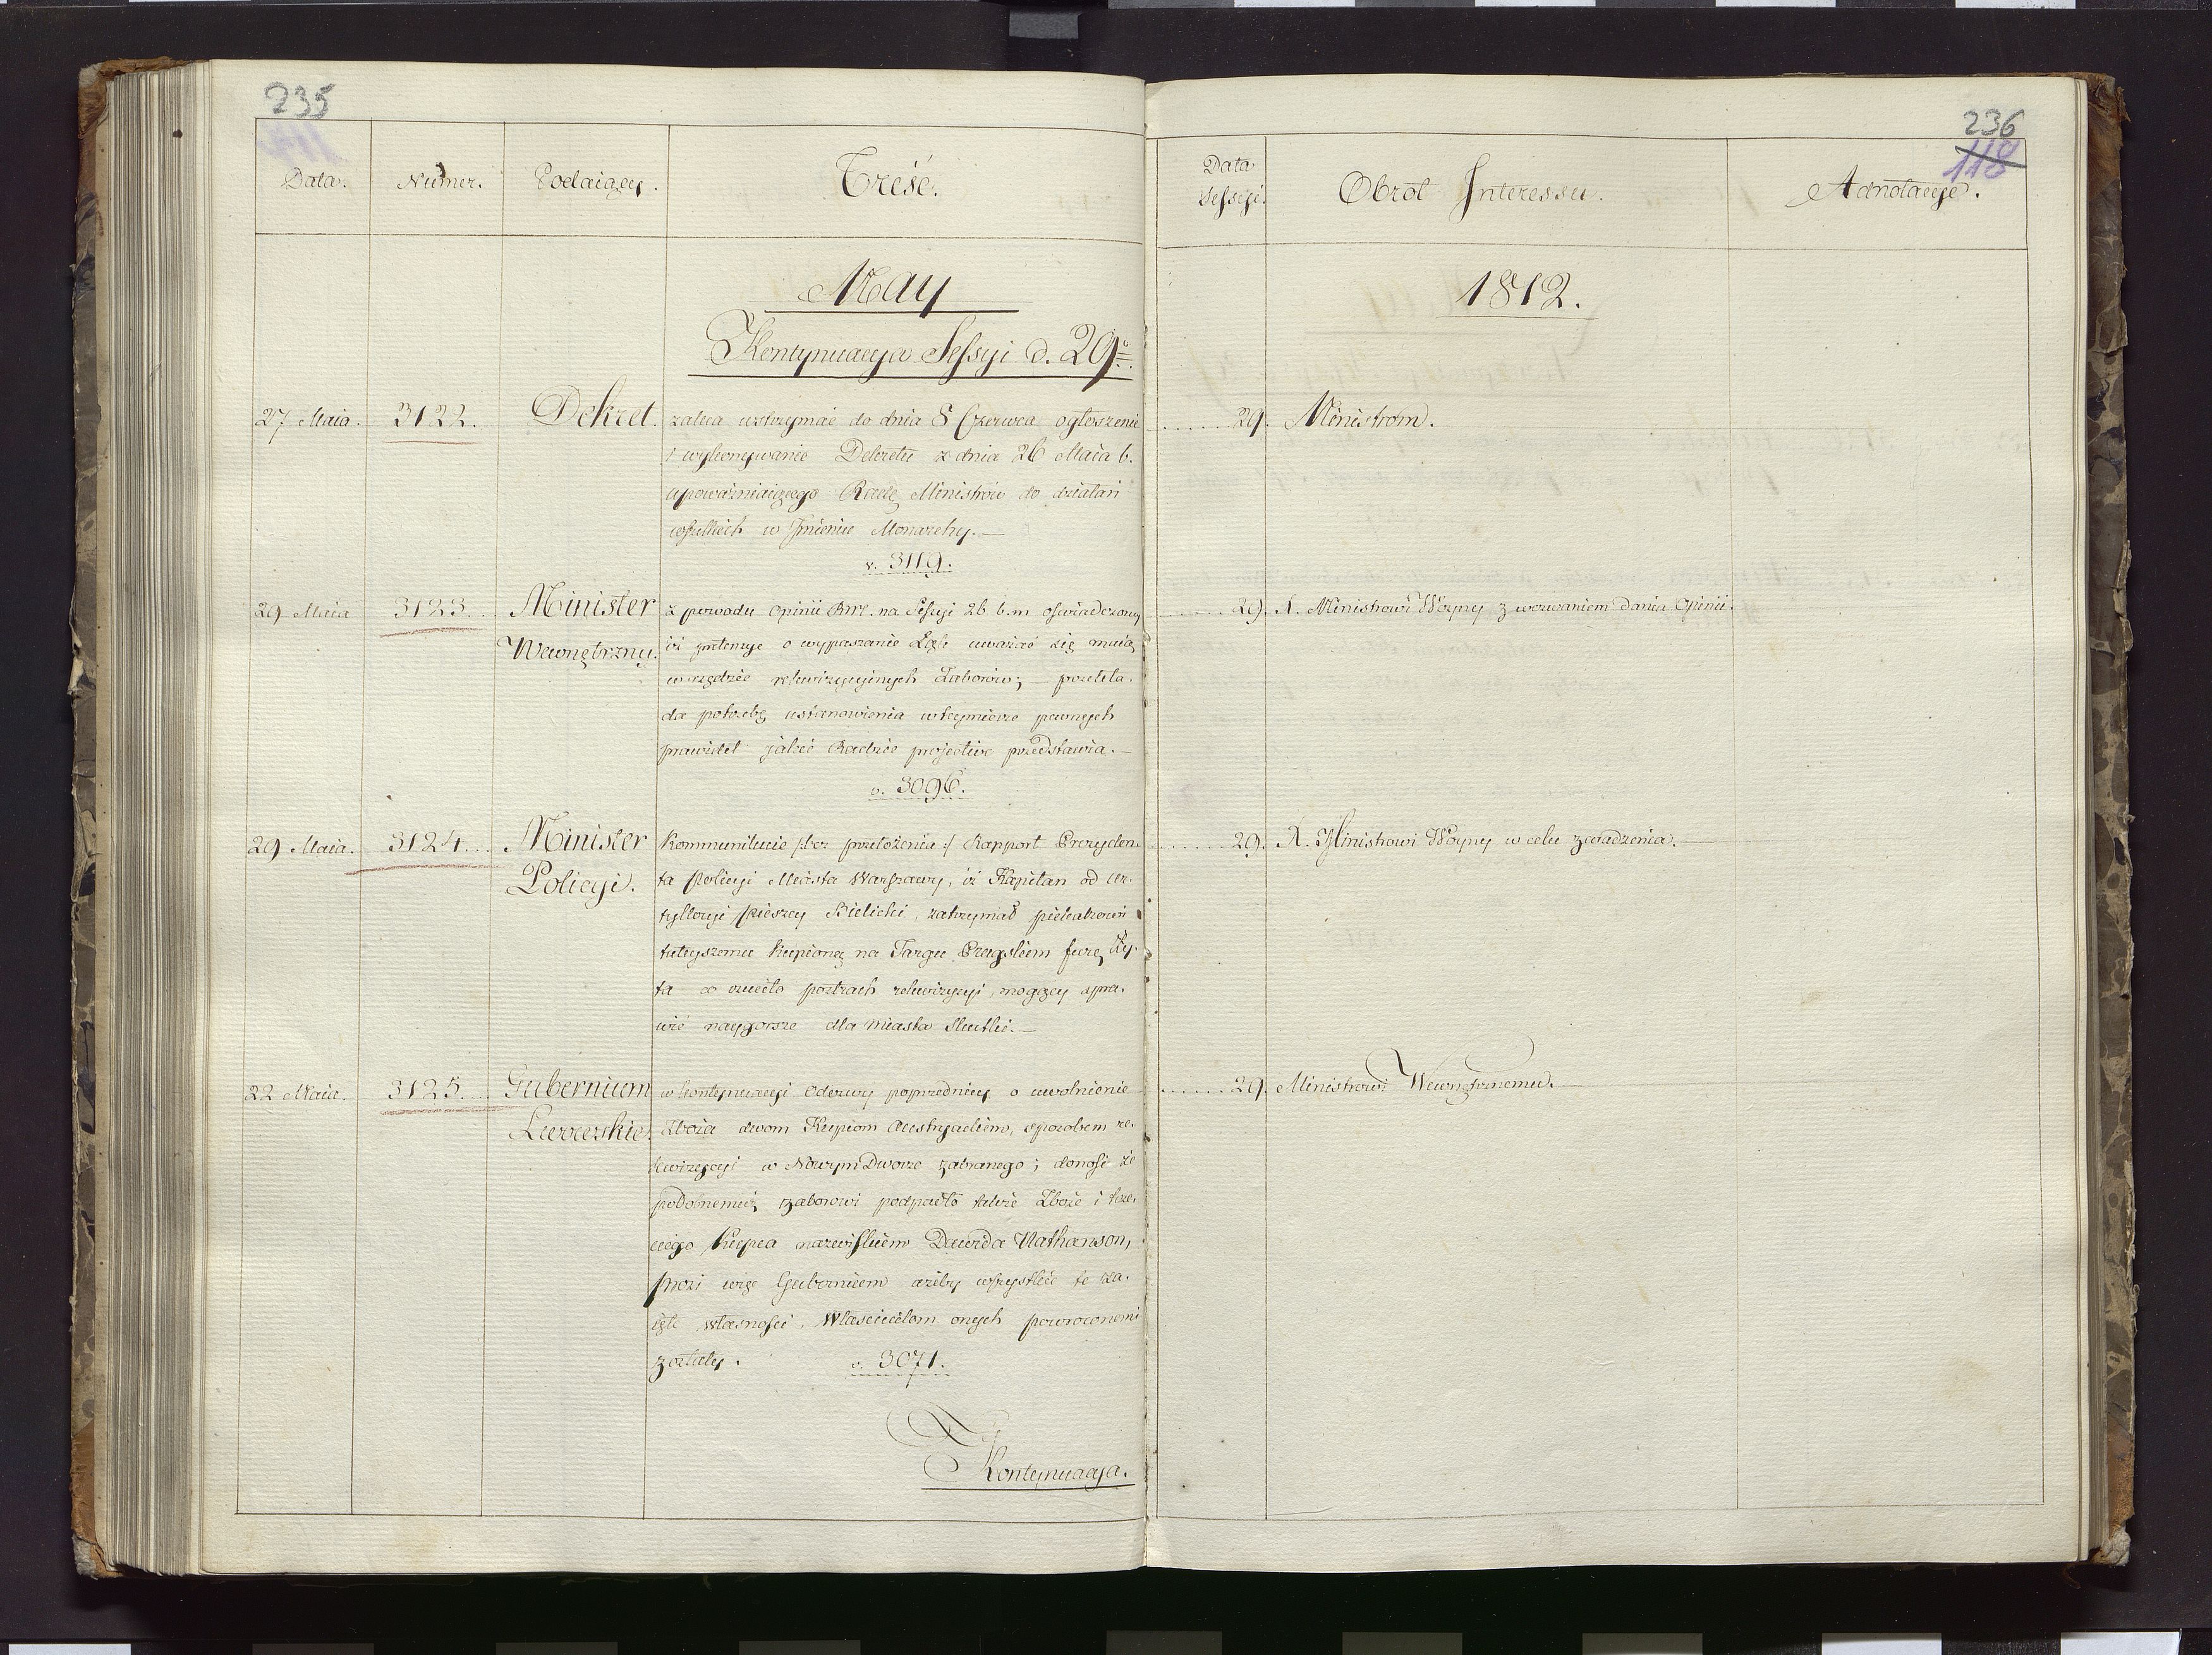 235
Data.
Numer.
Podaiący.
Treść.
May
Kontynuacya Sessyi d. 29º
27 Maia.
3122.
Dekret.
zaleca wstrzymać do dnia 8 Czerwca ogłoszenie
i wykonywanie Dekretu z dnia 26 Maia b.
upoważniaiącego Radę Ministrów do działań
wszelkich w Jmieniu Monarchy.—
v. 3119.
29 Maia
3123.
Minister
Wewnętrzny.
z powodu opinii na Sessyi 26 b. m oświadczoney
iż pretensye o wypaszanie Łąk uważać się maią
w rzędzie rekwizycyinych Zaborów; — przekła-
da potrzebę ustanowienia w tey mierze pewnych
prawideł jakie Radzie projective przedstawia.—
v. 3096.
29 Maia.
3124.
Minister
Policyi.
Kommunikuie /:bez przełożenia:/ Rapport Prezyden-
ta Policyi Miasta Warszawy, iż Kapitan od ar-
tylleryi pieszey Bielicki, zatrzymał piekarzowi
tuteyszemu kupioną na Targu Pragskiem furę Ży-
ta co rzuciło postrach rekwizycyi, mogący spra-
wić naygorsze dla Miasta skutki.—
22 Maia.
3125.
Gubernium
Lwowskie.
w kontynuacyi Odezwy poprzedniey o uwolnienie
Zboża dwom Kupcom Austryackiem, sposobem re-
kwizycyi w Nowym Dworze zabranego; donosi że
podobnemuż zaborowi podpadło także Zboże i trze-
ciego Kupca nazwiskiem Dawida Nathanson,
prosi więc Gubernium ażeby wszystkie te za-
ięte własności, Właścicielom onych powróconemi
zostały.
v. 3071.
Kontynuacya.
236
118
Data
Sessyi.
Obrot Jnteressu.
Adnotacye.
1812.
29. Ministrom.
29. X. Ministrowi Woyny z wezwaniem dania Opinii.
29. X. Ministrowi Woyny w celu zaradzenia.—
29. Ministrowi Wewnętrznemu.—